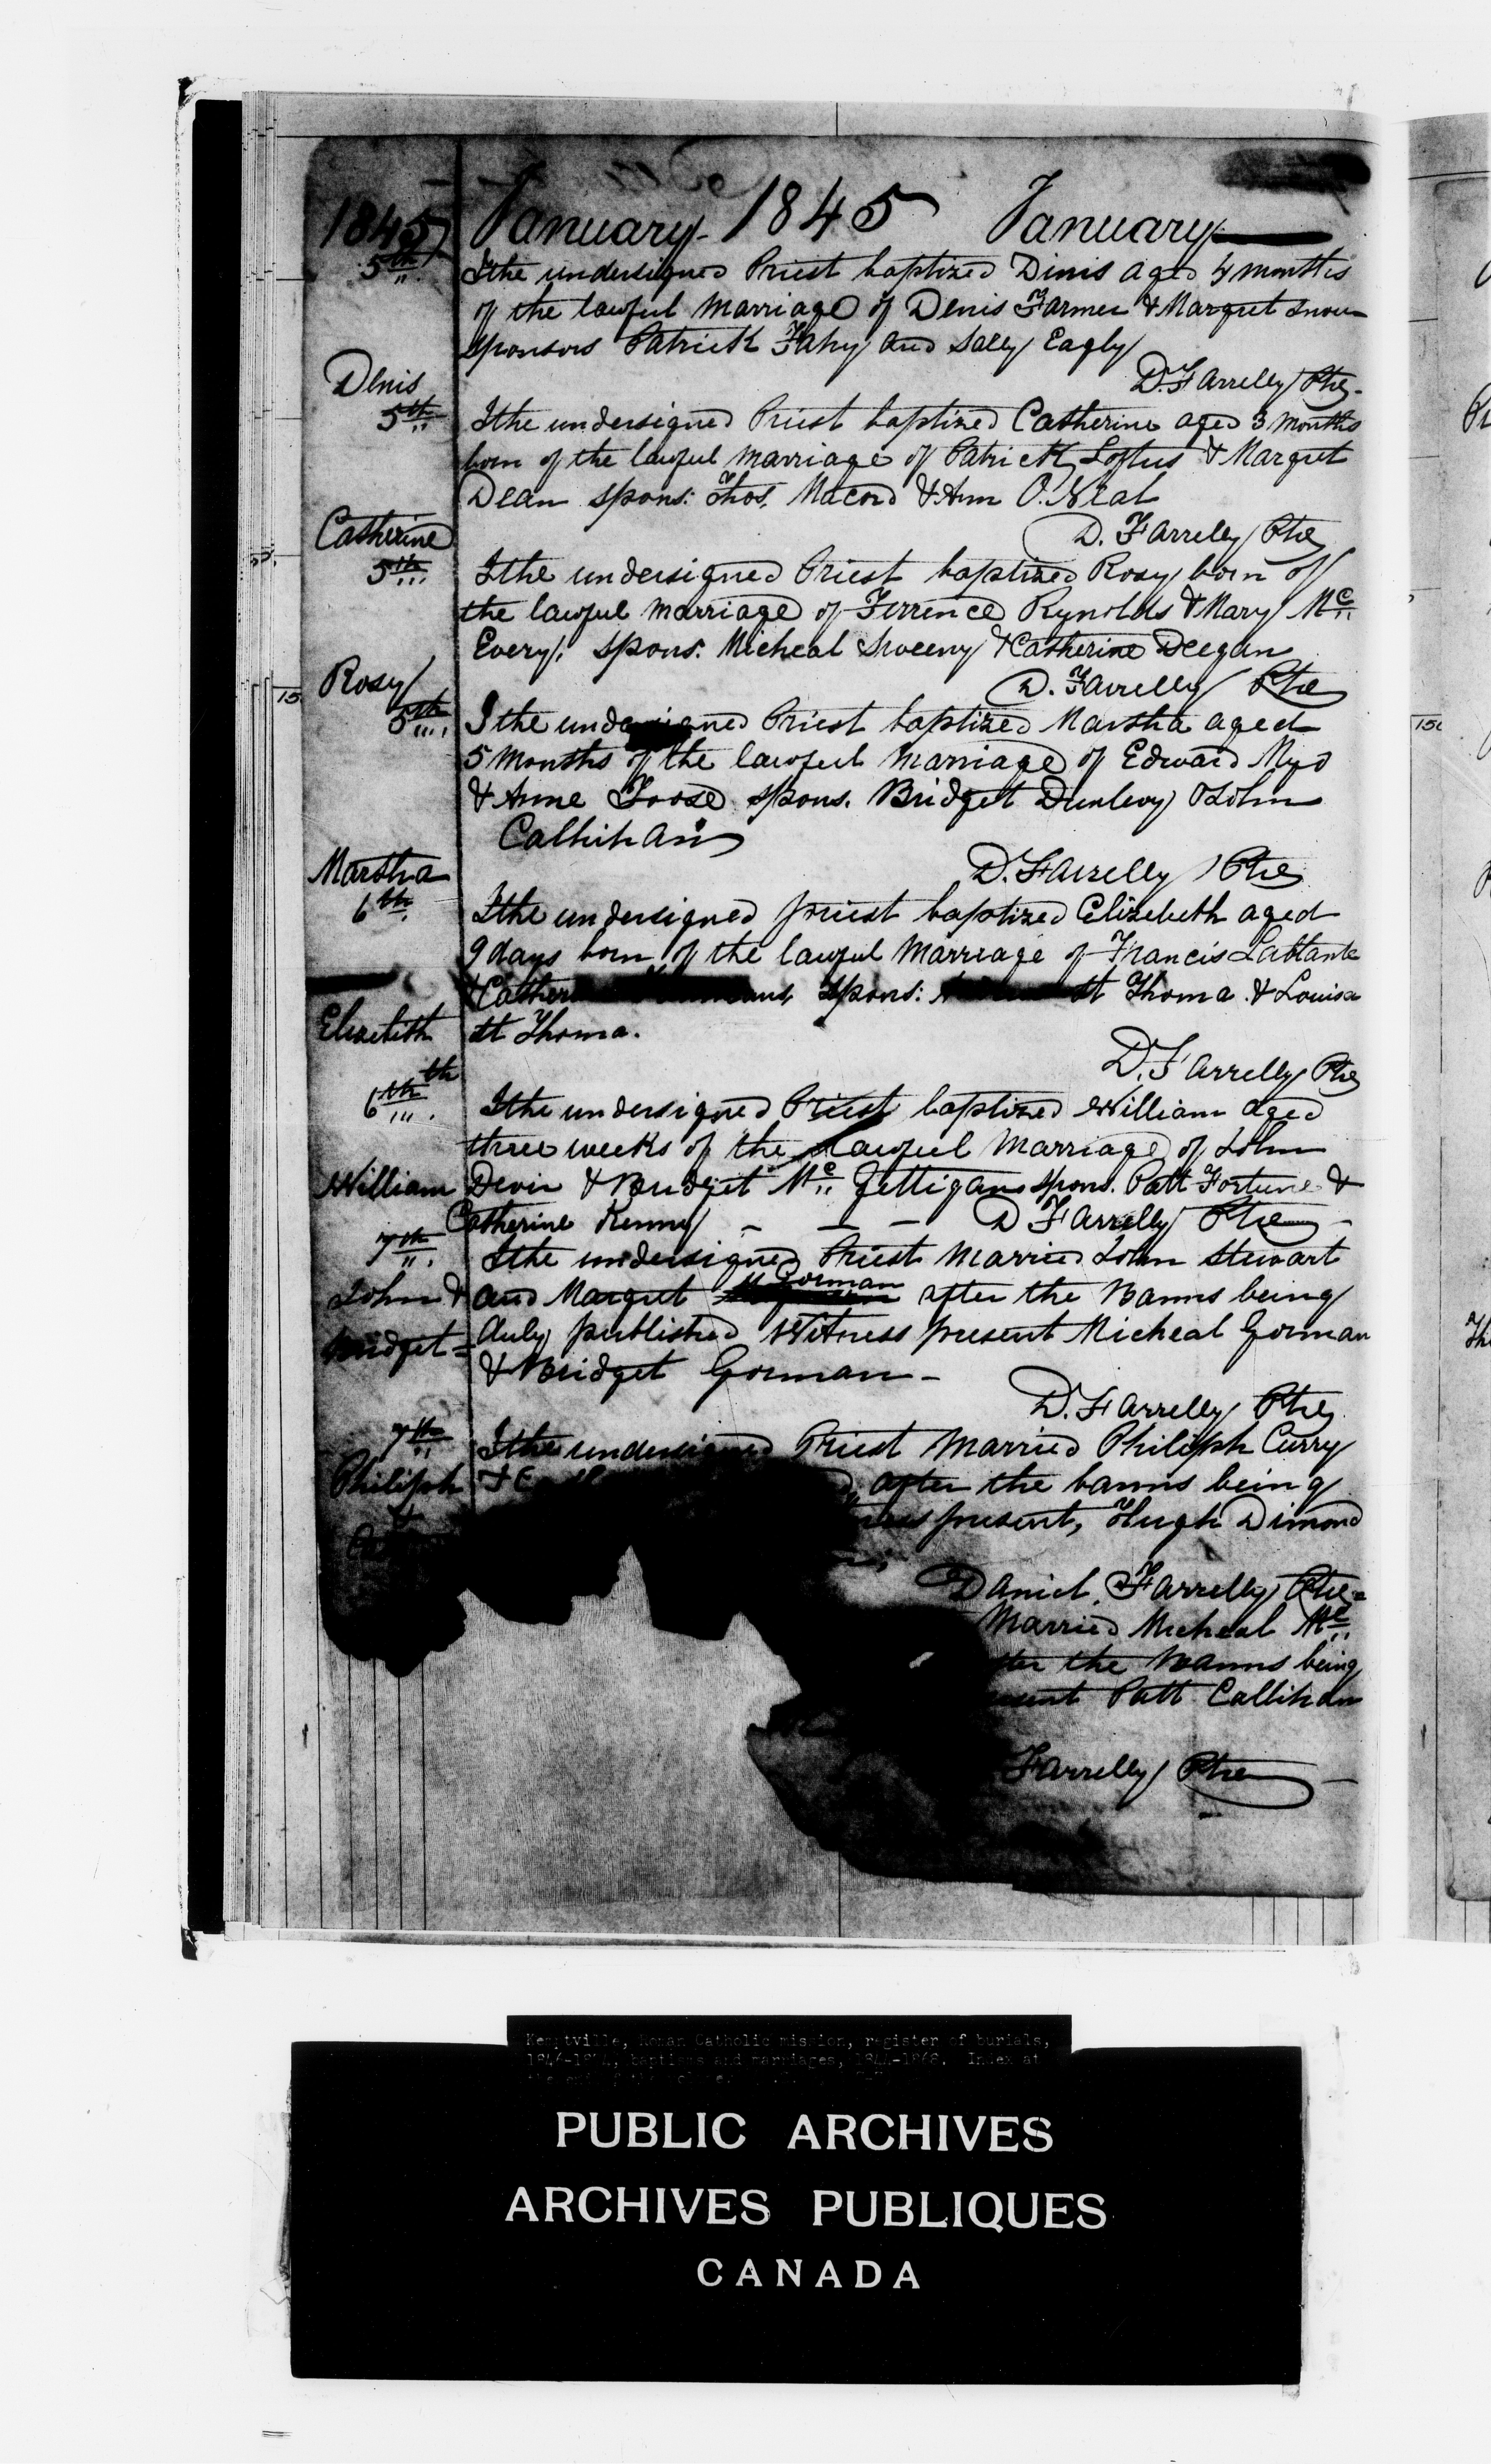 1845 January 1845 January
5th I the undersigned Priest baptized Dinis aged 4 months
of the lawful Marriage of Denis Farmer & Margret
sponsors Patrick Fahy and Sally Eagly
Denis
D. Farrelly Ptre
5th I the undersigned Priest baptized Catherine aged 3 months
born of the lawful Marriage of Patrick Loftus & Margret
Dean spons: Thos. Macord & Ann O.Neal
Catherine
D. Farreley Ptre
5th I the undersigned Priest baptized Rosy born of
the lawful marriage of Terrence Rynolds & Mary Mc
Every; spons: Micheal Sweeny & Catherine Deegan
Rosy
D. Farrelly Ptre
5th I the undersigned Priest baptized Marstha aged
5 Months of the lawful Marriage of Edward
& Anne spons. Bridget Dunlevy & John
Callihan
Marstha
D. Farrelly Ptre
6th I the undersigned priest baptized Elizebeth aged
9 days born of the lawful Marriage of Francis Lablante
& spons: St Thoma & Louisa
Elizebeth St Thoma.
D. Farrelly Ptre
6th I the undersigned Priest baptized William aged
three weeks of the Lawful Marriage of John
William Devin & Bridget Mc Gettigan spons. Patt Fortune &
Catherine Kenny - - - D Farrelly Ptre -
7th I the undersigned Priest Married John Stewart
John & and Margret Gorman after the Banns being
Bridget = duly published Witness present Micheal Gorman
& Bridget Gorman -
D. Farrelly Ptre
7th I the undersigned Priest Married Philiph Curry
Philiph & after the banns being
& present, Hugh Dimond
Daniel Farrelly Ptre
Married Micheal Mc
the Banns being
Patt Callihan
Farrelly Ptre
Kemptville, Roman Catholic mission, register of burials,
baptisms and marriages, 1844-1868. Index at
PUBLIC ARCHIVES
ARCHIVES PUBLIQUES
CANADA